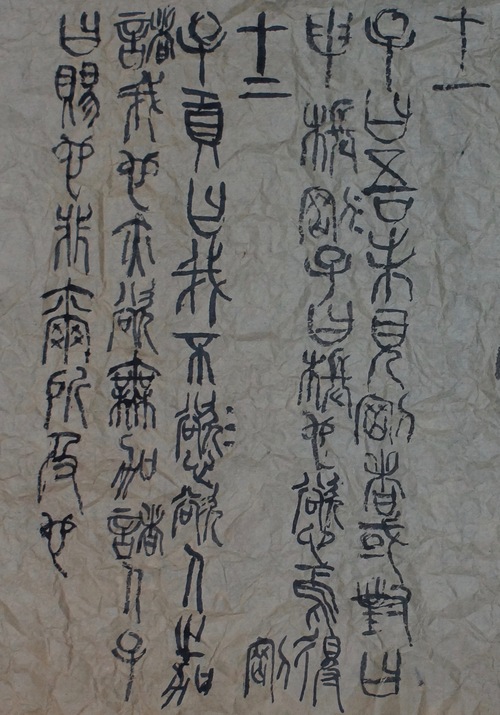 十一
子曰吾未見剛者或對曰
申棖剛子曰棖也慾焉得剛
十二
子貢曰我不慾欲人之加
諸我也亦欲無加諸人子
曰賜也非爾所及也